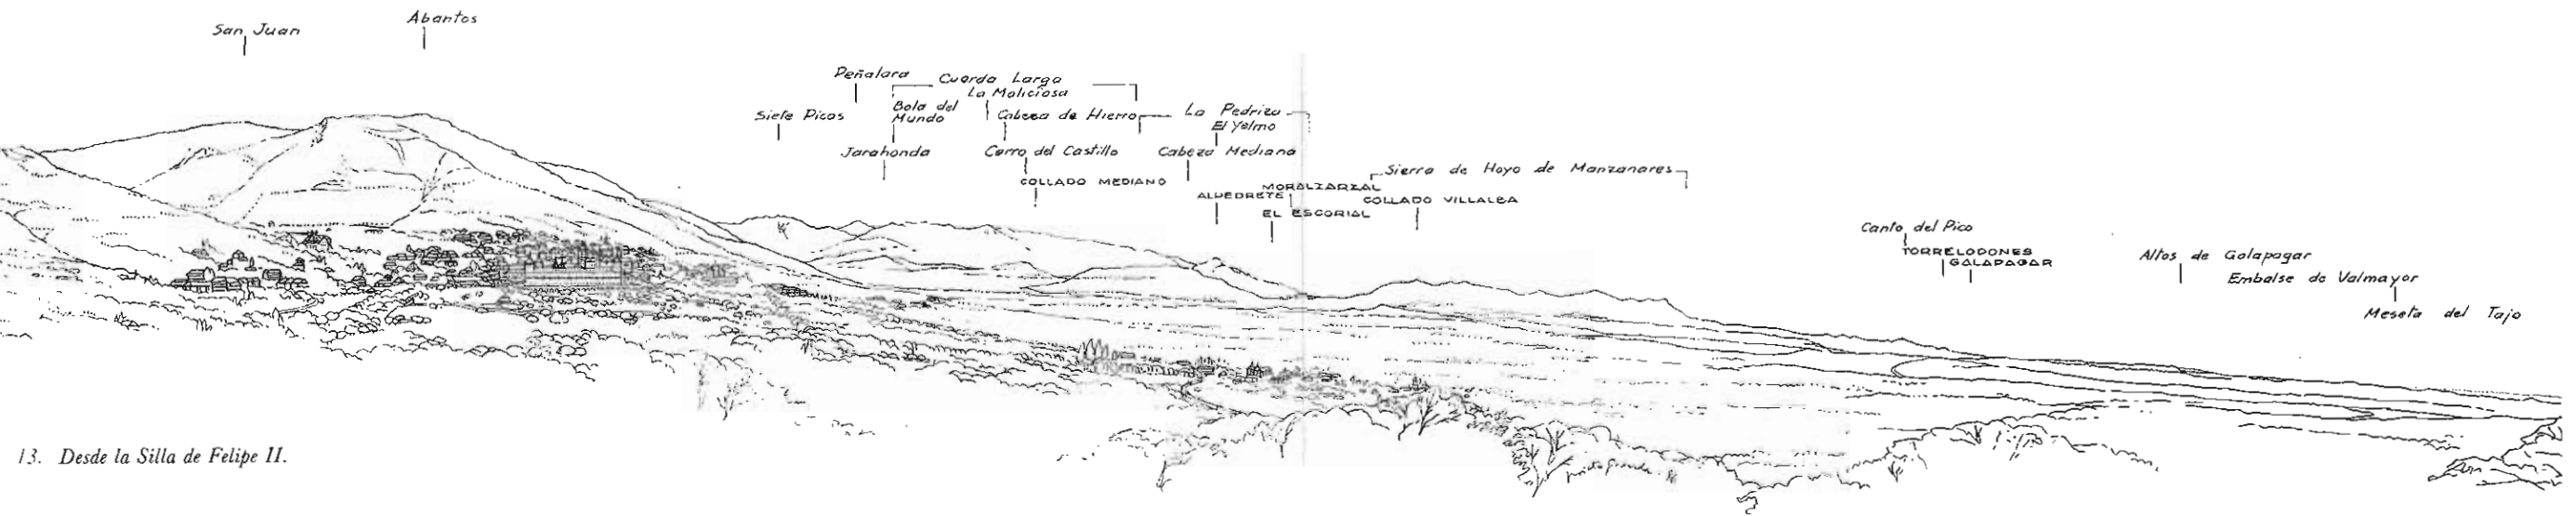 San Juan
Abantos
Peñalara
Cuerda Larga
La Maliciosa
Siete Picos
Bola del
Mundo
Cabeza de Hierro
La Pedriza
El Yelmo
Jarahonda
Cerro del Castillo
Cabeza Mediana
COLLADO MEDIANO
Sierra de Hoyo de Manzanares
MORALZARZAL
ALPEDRETE
COLLADO VILLALBA
EL ESCORIAL
Canto del Pico
TORRELODONES
GALAPAGAR
Altos de Galapagar
Embalse de Valmayor
Meseta del Tajo
13. Desde la Silla de Felipe II.